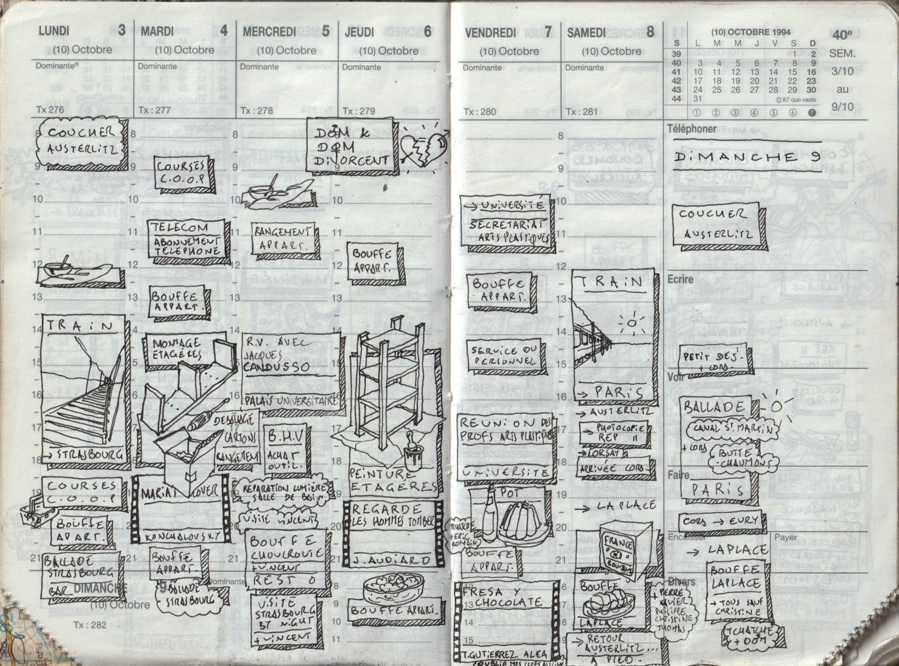 LUNDI 3
(10) Octobre
Dominante
Tx 276
8
COUCHER
AUSTERLITZ
9
10
11
12
13
14
TRAIN
→ STRASBOURG
COURSES
C.O.O.P
BOUFFE
APART.
BALLADE
STRASBOURG
BAR
DIMANCHE 9
(10) Octobre
Tx : 282
MARDI 4
(10) Octobre
Dominante
Tx : 277
8
COURSES
C.O.O.P
9
10
TELECOM
ABONNEMENT
TELEPHONE
11
12
BOUFFE
APPART.
MONTAGE
ETAGÈRES
DEBALLAGE
CARTONS
RANGEMENT
MARIA'S LOVER
KONCHALOVSKY
BOUFFE
APPART.
BALLADE
STRASBOURG
MERCREDI 5
(10) Octobre
Dominante
Tx : 278
8
9
10
RANGEMENT
APPART.
11
12
13
14
R.V. AVEC
JACQUES
CANDUSSO
PALAIS UNIVERSITAIRE
B.H.V
ACHAT
OUTIL.
REPARATION LUMIÈRE
SALLE DE BAIN
VISITE VINCENT
BOUFFE
CHOUCROUTE
VINCENT
RESTO
VISITE
STRASBOURG
BY NIGHT
+ VINCENT
JEUDI 6
(10) Octobre
Dominante
Tx : 279
DOM &
DOM
DIVORCENT
9
10
11
BOUFFE
APPART.
12
13
14
PEINTURE
ETAGERES
REGARDE
LES HOMMES TOMBER
J. AUDIARD
BOUFFE APPART.
VENDREDI 7
(10) Octobre
Tx : 280
→ UNIVERSITE
SECRETARIAT
ARTS PLASTIQUES
BOUFFE
APPART.
SERVICE DU
PERSONNEL
REUNION DES
PROFS ARTS PLASTIQUES
UNIVERSITE
POT
BOUFFE
APPART.
FRESA Y
CHOCOLATE
T. GUTIERREZ ALEA
SAMEDI 8
(10) Octobre
Tx : 281
8
9
10
11
12
TRAIN
13
14
15
16
→ PARIS
→ AUSTERLITZ
→ PHOTOCOPIE
REP 11
→ ORSAY
ARRIVÉE CORS.
→ LAPLACE
FRANCE
ROUMANIE
BOUFFE
LAPLACE
→ RETOUR
AUSTERLITZ...
A PIED.
(10) OCTOBRE 1994
S L M M J V S D
39 1 2
40 3 4 5 6 7 8 9
41 10 11 12 13 14 15 16
42 17 18 19 20 21 22 23
43 24 25 26 27 28 29 30
44 31
© 87 quo vadis
40e
SEM.
3/10
au
9/10
Téléphoner
DIMANCHE 9
COUCHER
AUSTERLITZ
Ecrire
PETIT DEJ'
+ CORS.
Voir
BALLADE
CANAL ST. MARTIN
+ CORS
BUTTE
CHAUMONT
Faire
PARIS
CORS → EVRY
Encaisser
Payer
→ LAPLACE
Divers
BOUFFE
LAPLACE
+ TOUS SAUF
CHRISTINE
TCHATCHE
+ DOM